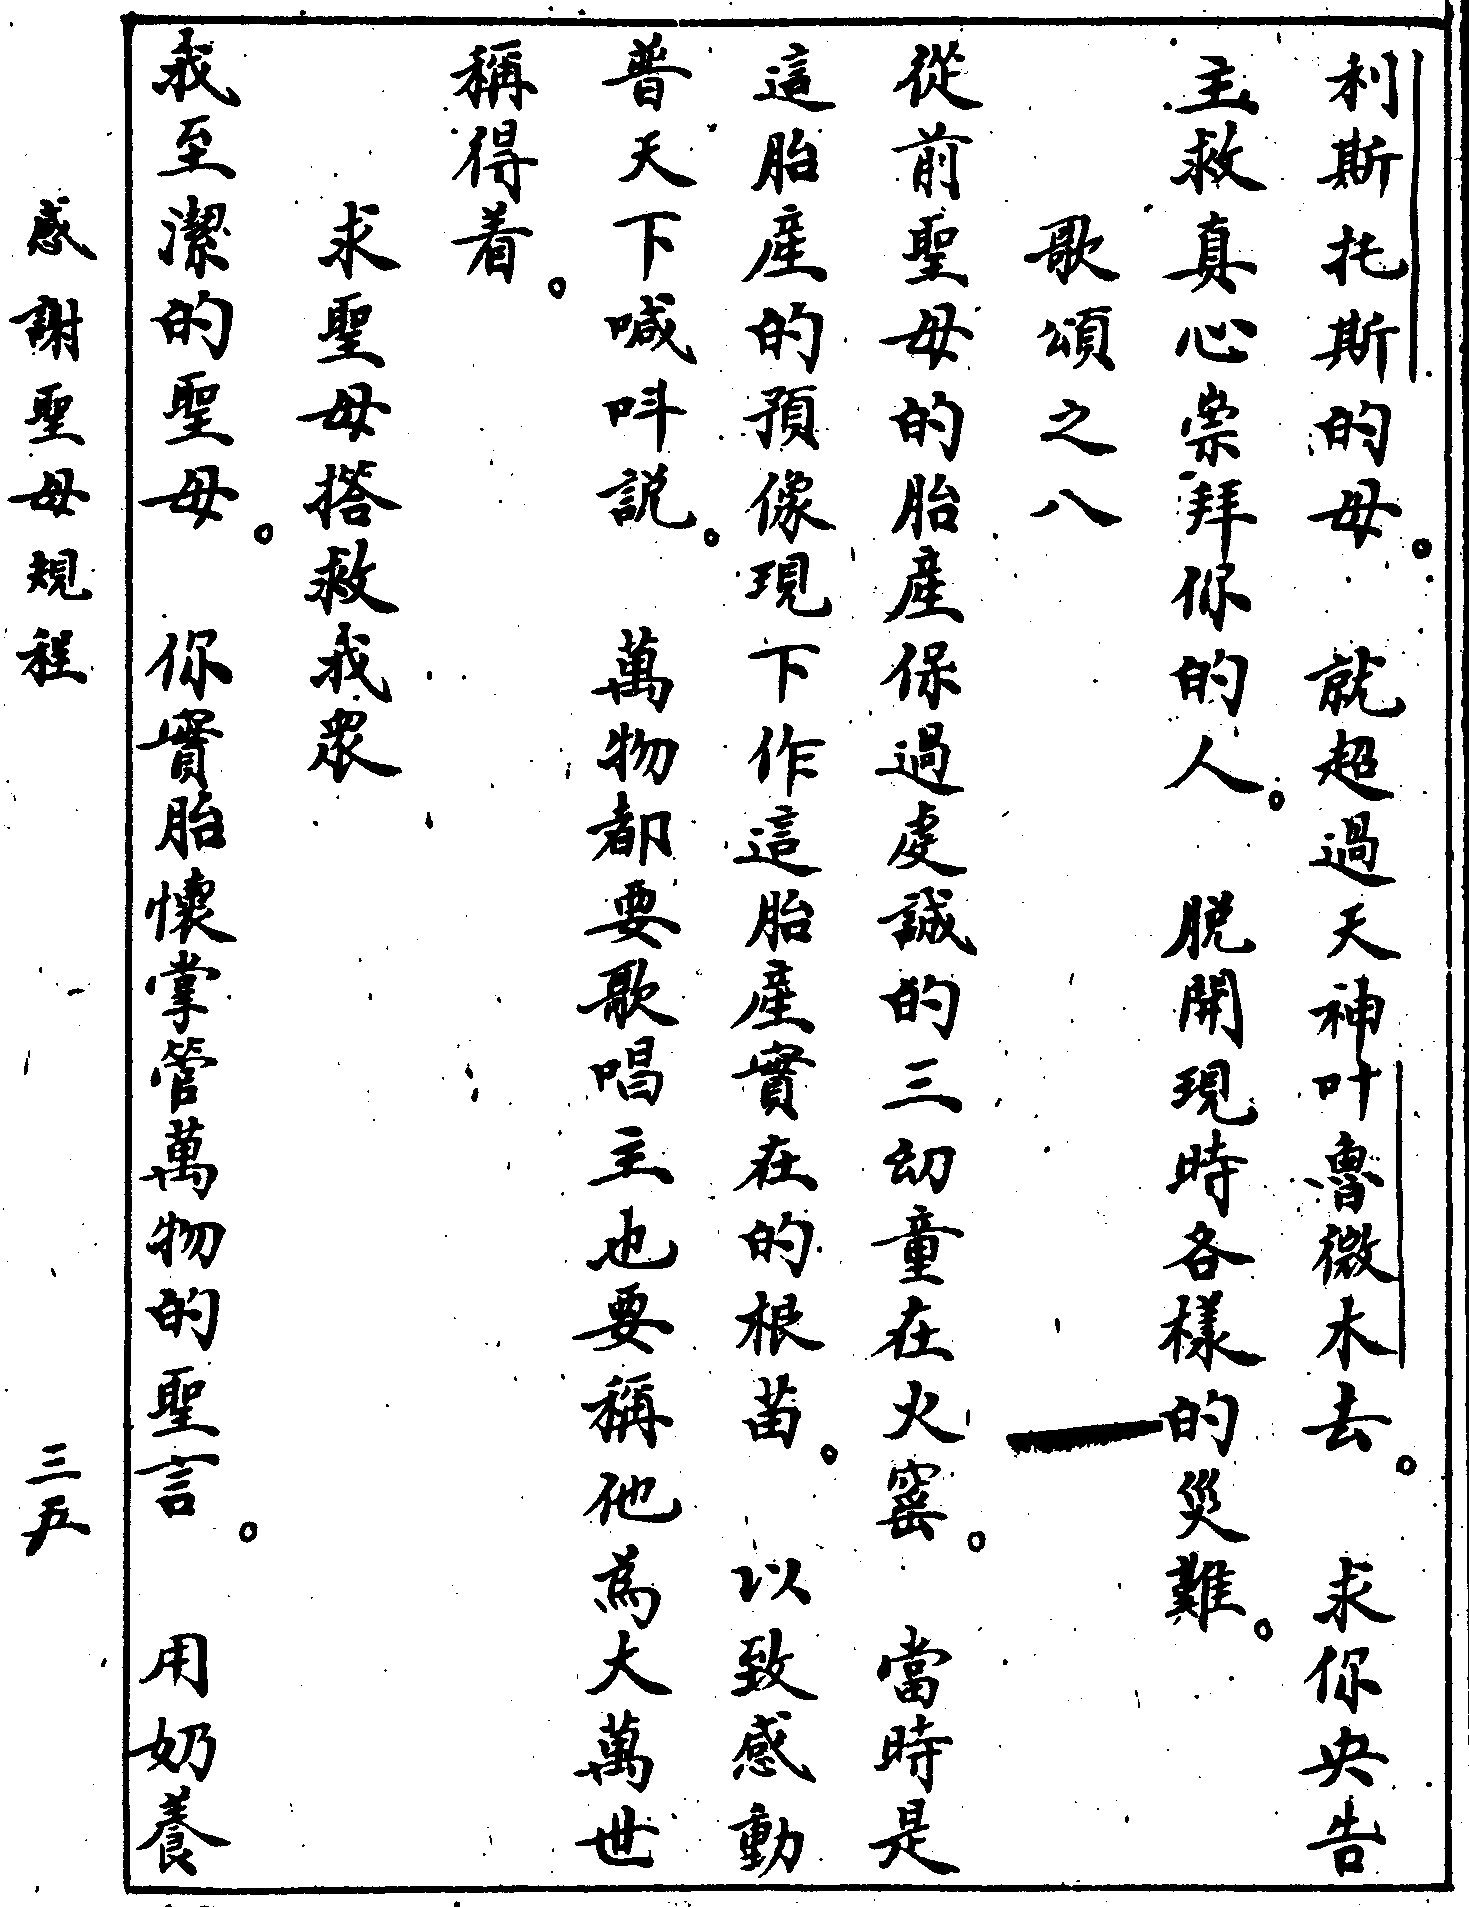 利斯托斯的母。　就超過天神叶魯微木去。　求你央告
主救真心崇拜你的人。　脫開現時各樣的災難。
歌頌之八
從前聖母的胎產保過虔誠的三幼童在火窰。　當時是
這胎產的預像現下作這胎產實在的根苗。　以致感動
普天下喊呌説。　萬物都要歌唱主也要稱他為大萬世
稱得着。
求聖母搭救我衆
我至潔的聖母。　你實胎懷掌管萬物的聖言。　用奶養
感謝聖母規程　三五